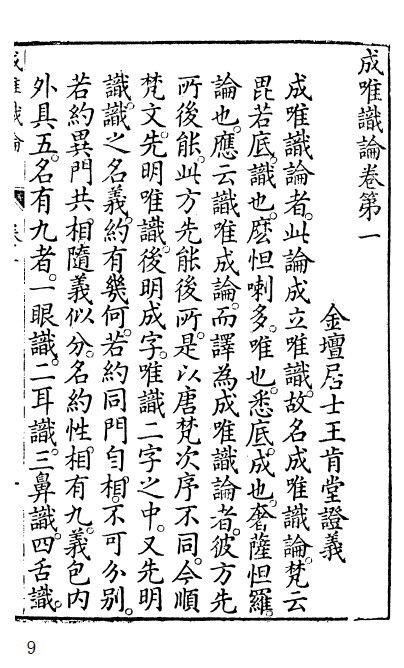 成唯識論卷第一
金壇居士王肯堂證義
成唯識論者。此論成立唯識。故名成唯識論。梵云
毘若底。識也。麼怛喇多。唯也。悉底。成也。奢薩怛羅。
論也。應云識唯成論。而譯為成唯識論者。彼方先
所後能。此方先能後所。是以唐梵次序不同。今順
梵文。先明唯識。後明成字。唯識二字之中。又先明
識。識之名義。約有幾何。若約同門自相。不可分別。
若約異門共相。隨義似分。名約性相有九。義包內
外具五。名有九者。一眼識。二耳識。三鼻識。四舌識。
成唯識論
9